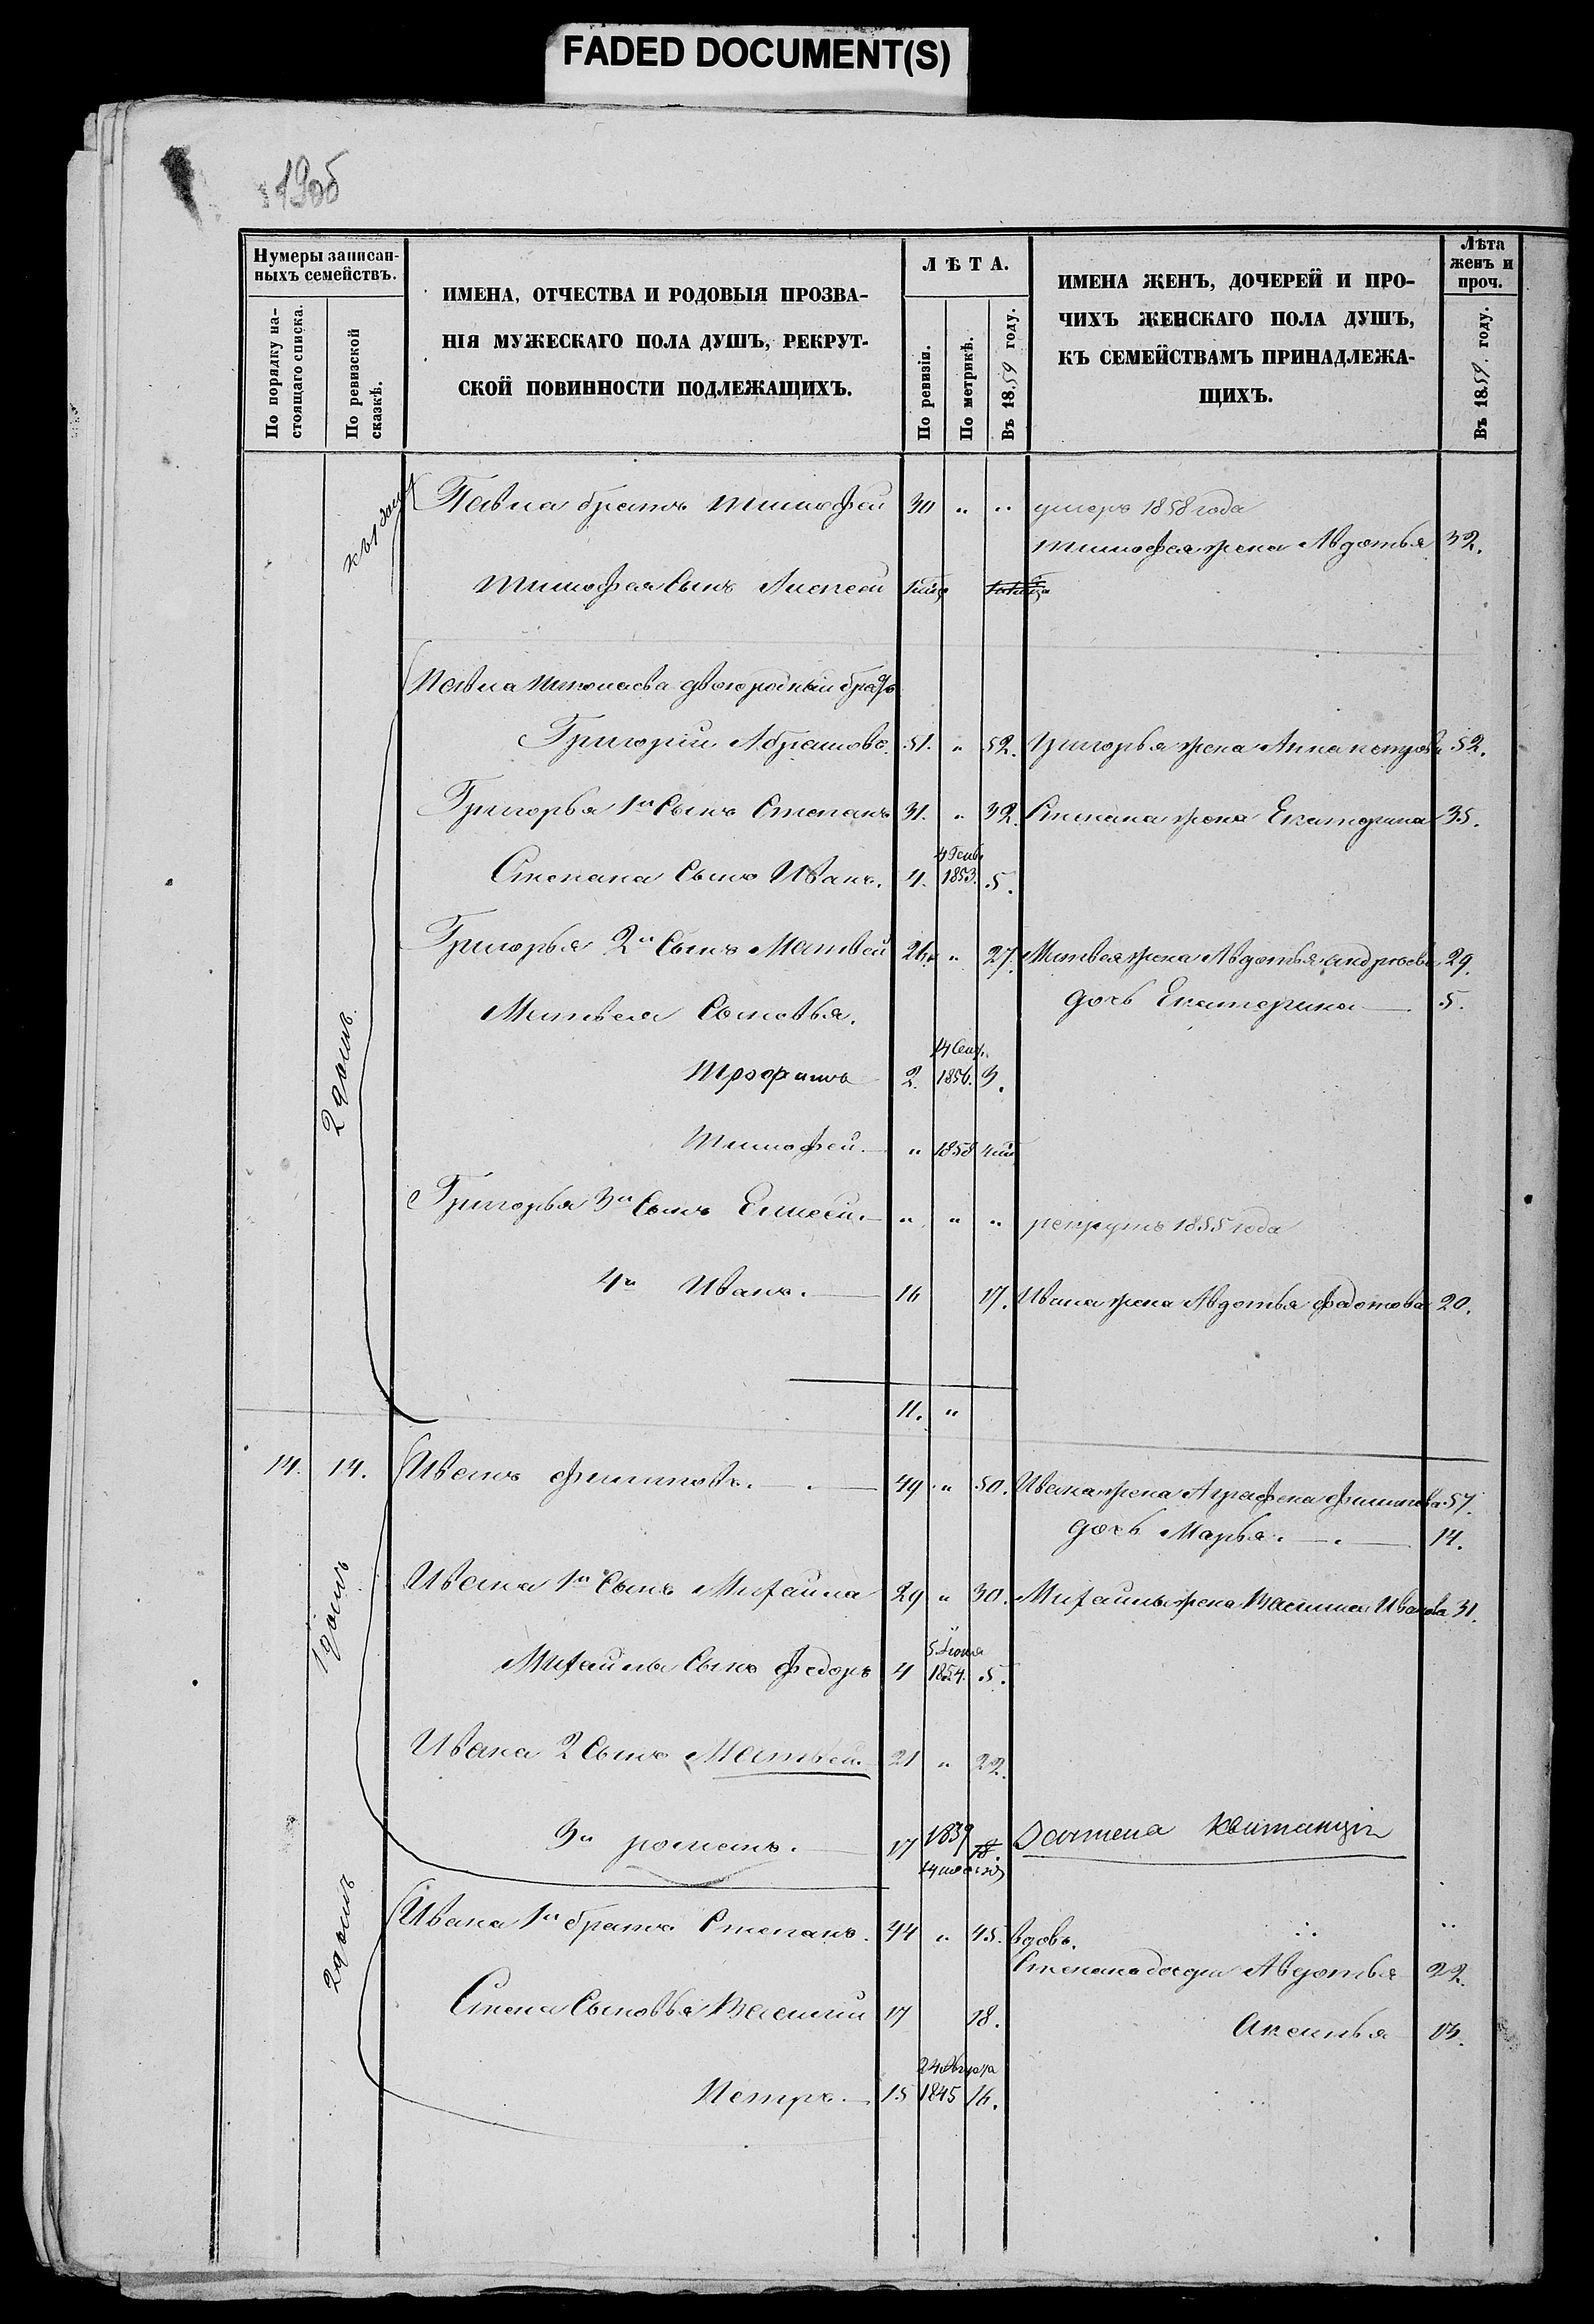 FADED DOCUMENT(S)
190б
Нумеры записан-
ныхъ семействъ.
По порядку на-
стоящаго списка.
По ревизской
сказкѣ.
ИМЕНА, ОТЧЕСТВА И РОДОВЫЯ ПРОЗВА-
НІЯ МУЖЕСКАГО ПОЛА ДУШЪ, РЕКРУТ-
СКОЙ ПОВИННОСТИ ПОДЛЕЖАЩИХЪ.
ЛѢТА.
По ревизіи.
По метрикѣ.
Въ 1859 году.
ИМЕНА ЖЕНЪ, ДОЧЕРЕЙ И ПРО-
ЧИХЪ ЖЕНСКАГО ПОЛА ДУШЪ,
КЪ СЕМЕЙСТВАМЪ ПРИНАДЛЕЖА-
ЩИХЪ.
Лѣта
женъ и
проч.
Въ 1859 году.
Павла братъ Тимофей 30 " " умеръ 1858 года
Тимофея жена Авдотья 32.
Тимофея Сынъ Алексей
Павла Николаева двоюродный братъ
Григорий Абрамовъ. 51. " 52. Григорья жена Анна петрова 52.
Григорья 1й Сынъ Степанъ 31. " 32. Степана жена Екатерина 35.
Степана Сынъ Иванъ. 4. 1853. 5.
Григорья 2й Сынъ Матвей 26. " 27. Матвея жена Авдотья андреева 29.
дочь Екатерина 5.
Матвея Сыновья.
2 домъ.
14 Сент.
Трофимъ 2. 1856. 3.
Тимофей " 1858
Григорья 3й Сынъ Елисей. " " " рекрутъ 1855 года
4й Иванъ. 16 17. Ивана жена Авдотья федотова 20.
11. "
14. 14. Иванъ филиповъ. 49 " 50. Ивана жена Аграфена филипова 57.
дочь Марья. 14.
1 домъ
Ивана 1й Сынъ Михаила 29 " 30. Михаилы жена Василиса Иванова 31.
5 Iюня
Михаилы Сынъ федоръ 4 1854. 5.
Ивана 2 Сынъ Матвей. 21 " 22.
3й романъ. 17 1839 18. Зачтена квитанция
2 домъ
Ивана 1й братъ Степанъ. 44 " 45. вдовъ.
Степана дочери Авдотья 22.
Степа Сыновья Василий 17 18.
Аксинья 13.
24 Августа
Петръ 15 1845 16.